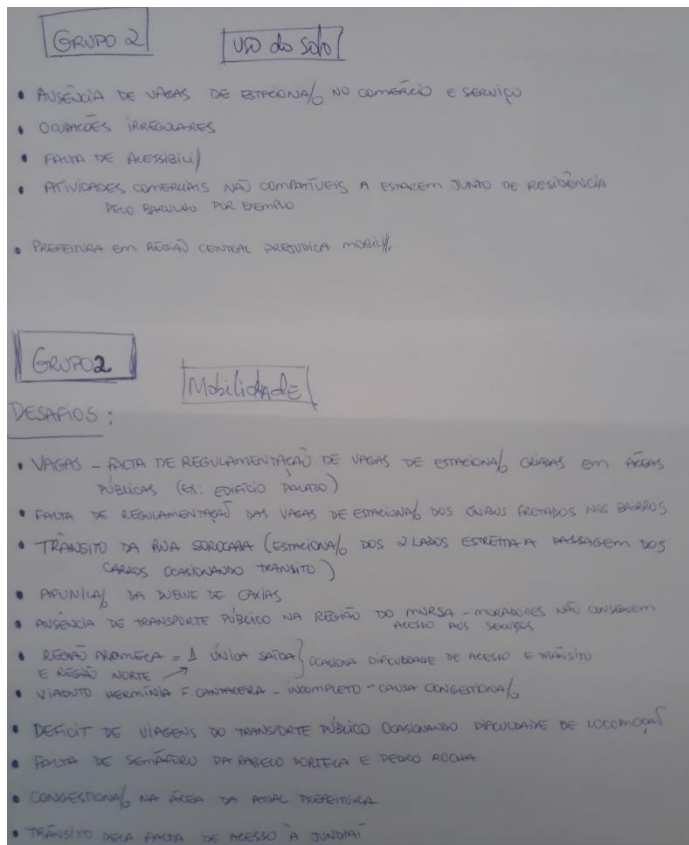 GRUPO 2
USO do Solo
• AUSÊNCIA DE VAGAS DE ESTACIONA/o NO COMÉRCIO E SERVIÇO
• OCUPAÇÕES IRREGULARES
• FALTA DE ACESSIBILI//
• ATIVIDADES COMERCIAIS NÃO COMPATÍVEIS A ESTAREM JUNTO DE RESIDÊNCIA
PELO BARULHO POR EXEMPLO
• PREFEITURA EM REGIÃO CENTRAL PREJUDICA MOBILI//.
GRUPO 2
Mobilidade
DESAFIOS :
• VAGAS - FALTA DE REGULAMENTAÇÃO DE VAGAS DE ESTACIONA/o CRIADAS EM ÁREAS
PÚBLICAS (EX: EDIFÍCIO PALADO)
• FALTA DE REGULAMENTAÇÃO DAS VAGAS DE ESTACIONA/o DOS ÔNIBUS FRETADOS NOS BAIRROS
• TRÂNSITO DA RUA SOROCABA (ESTACIONA/o DOS 2 LADOS ESTREITA A PASSAGEM DOS
CARROS OCASIONANDO TRÂNSITO)
• AFUNILA/o DA DUQUE DE CAXIAS
• AUSÊNCIA DE TRANSPORTE PÚBLICO NA REGIÃO DO MURSA - MORADORES NÃO CONSEGUEM
ACESSO AOS SERVIÇOS
• REGIÃO PROMECA = 1 ÚNICA SAÍDA } OCASIONA DIFICULDADE DE ACESSO E TRÂNSITO
E REGIÃO NORTE
• VIADUTO HERMÍNIA F. - INCOMPLETO - CAUSA CONGESTIONA/o
• DEFICIT DE VIAGENS DO TRANSPORTE PÚBLICO OCASIONANDO DIFICULDADE DE LOCOMOÇÃO
• FALTA DE SEMÁFORO DA RABELO PORTELA E PEDRO ROCHA
• CONGESTIONA/o NA ÁREA DA ATUAL PREFEITURA
• TRÂNSITO PELA FALTA DE ACESSO À JUNDIAÍ